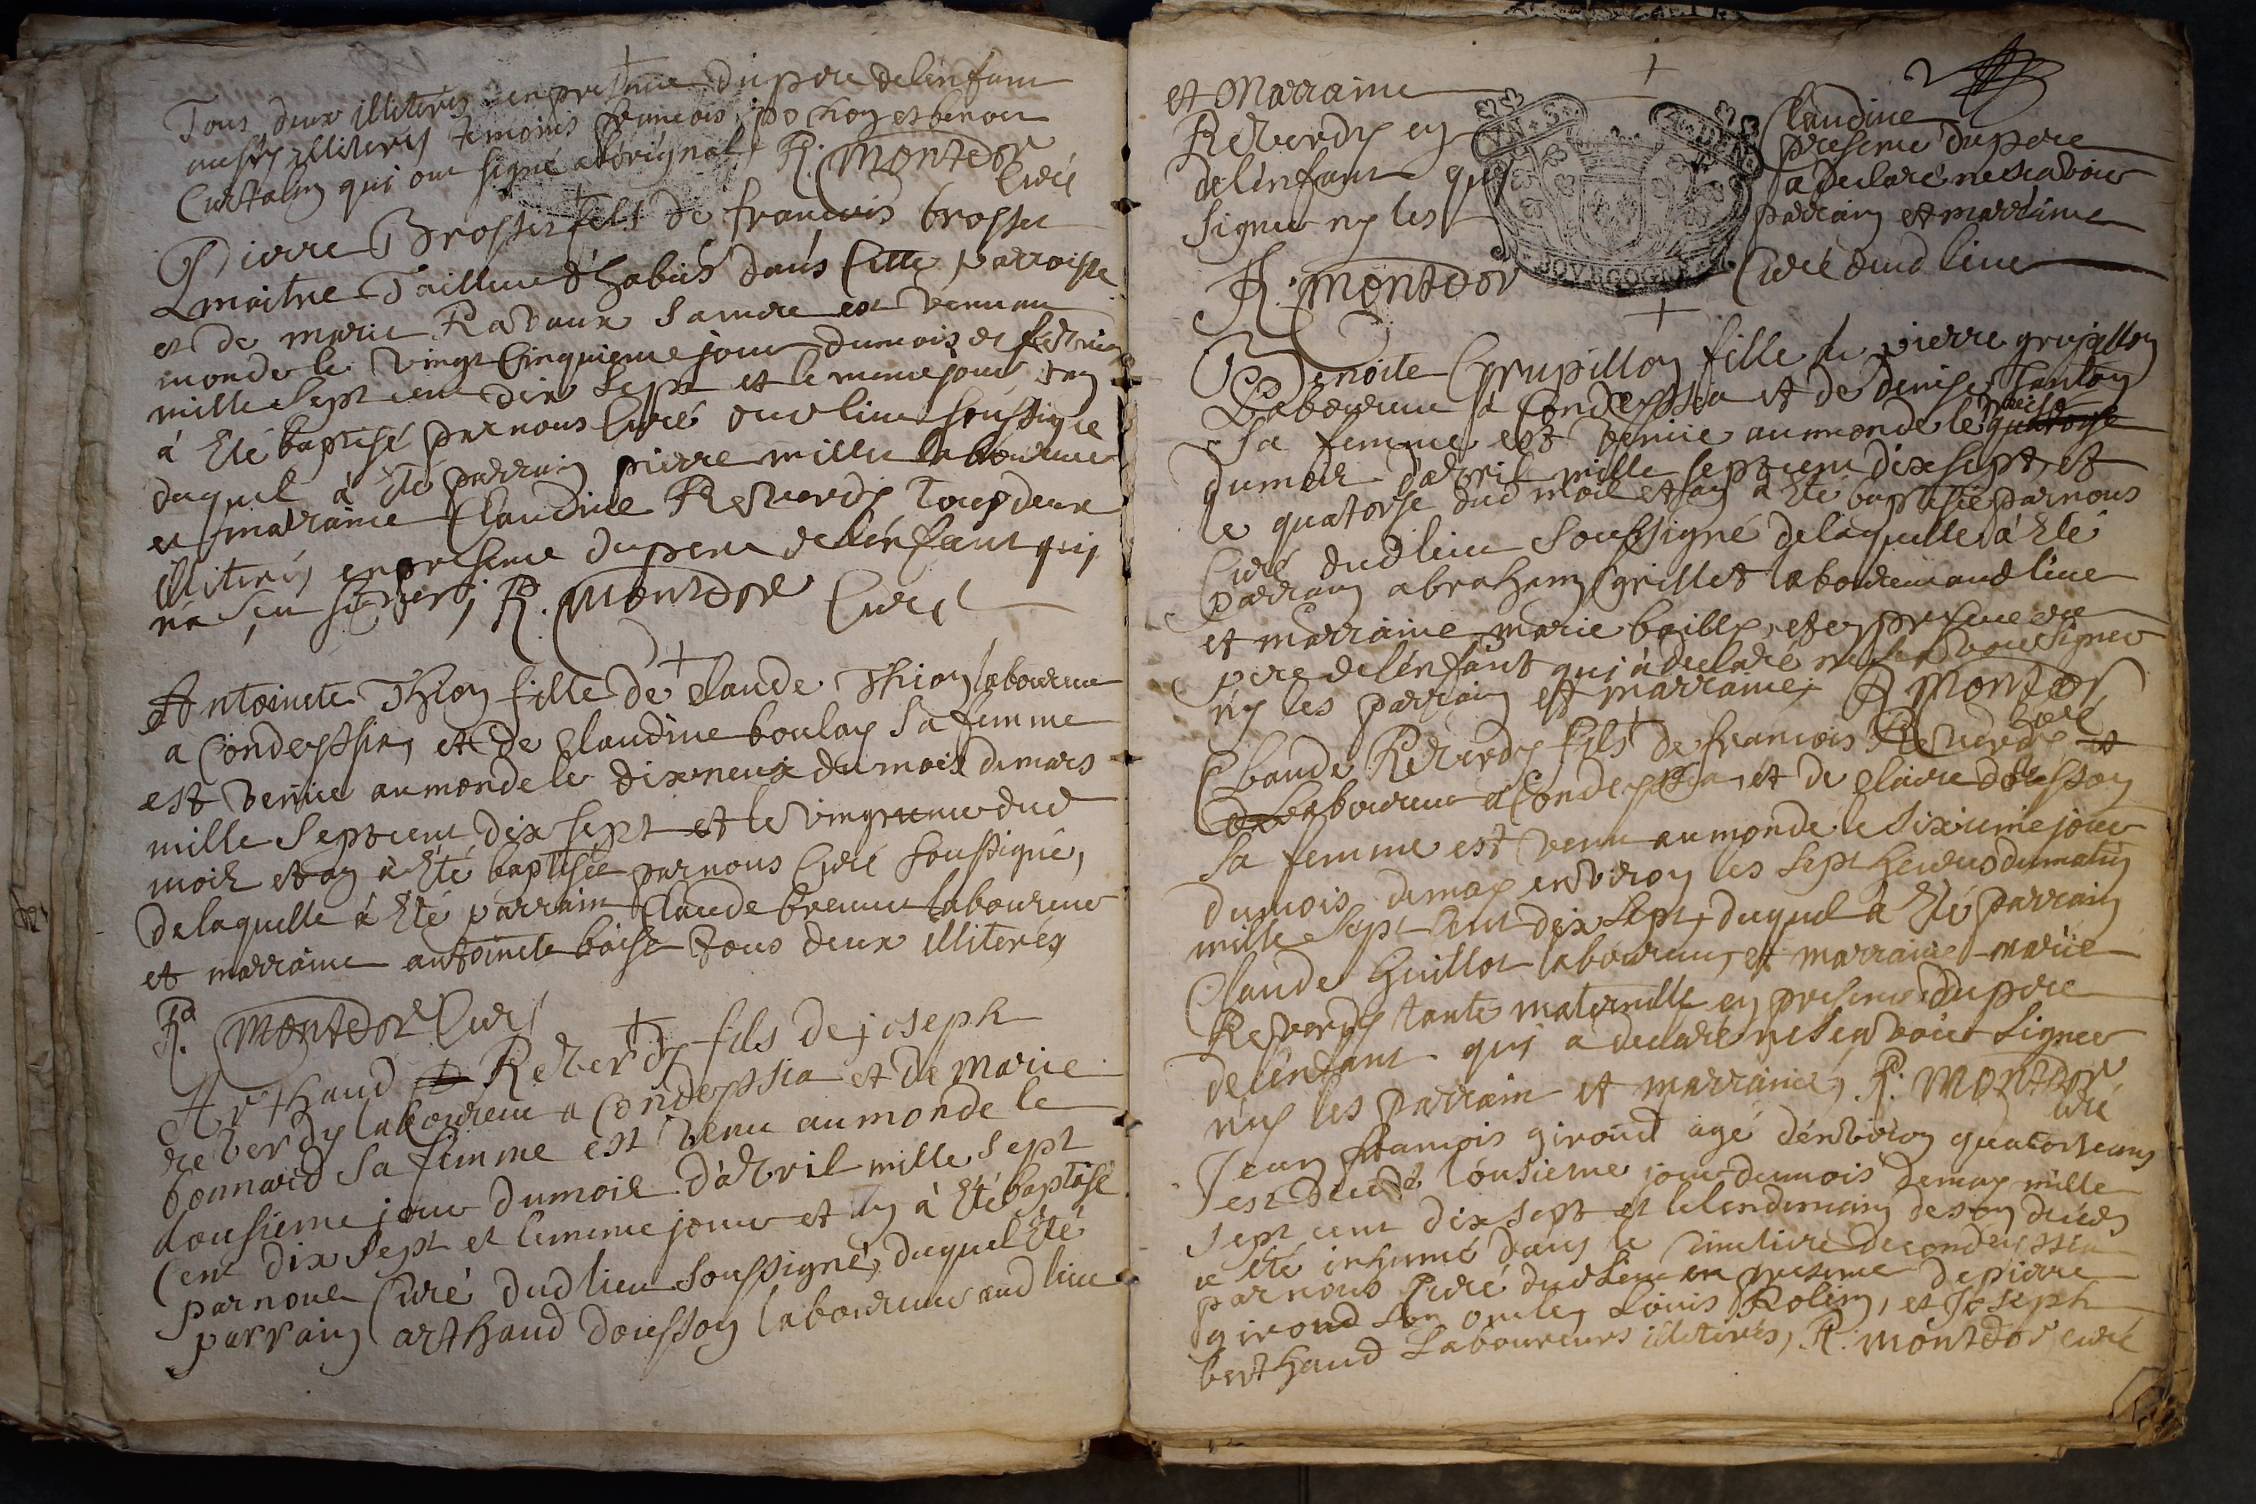 Tous deux illiterés en presence du pere de lénfant
aussy illiterés temoins francois pochon et benoit
Curtalin qui ont signé a lórignal, R. Montdor
Curé
Pierre Brosset fils de francois brosset
maitre Tailleur d'habits dans Cette parroisse
et de marie Ravaux sa mere est venu au
monde le vingt Cinquieme jour du mois de fevrier
mille sept cent dix sept et le meme jour et an
à Eté baptisé par nous Curé dud lieu soussigné
duquel à Eté parrain pierre millet laboureur
et marraine Claudine Reverdy Tous deux
illiterés en presence du pere de lénfant qui
na sçu signer, R. Montdor Curé
Antoinete Thion fille de Claude Thion laboureur
a Condeyssia, et de Claudine boulay sa femme
est venüe au monde le dixneuf du mois de mars
mille sept cent dix sept et le vingtieme dud
mois et an à Eté baptisée par nous Curé soussigné,
de laquelle à Eté parrain Claude brevet laboureur
et marraine antoinete boise tous deux illiterés
R. Montdor Curé
Arthaud Reverdy fils de joseph
reverdy laboureur a Condeyssia et de marie
bonnard sa femme est venu au monde le
dousieme jour du mois dàvril mille sept
Cent dix sept et le meme jour et an à Eté baptisé
par nous Curé dud lieu soussigné, duquel Eté
parrain arthaud douisson laboureur aud lieu
et Marraine Claudine
Reverdy en presence du pere
de lénfant qui a declaré ne scavoir
signer ny les parrain et marraine
R. Montdor Curé dud lieu
BOURGOGNE
Benoite Grupillon fille de pierre grupillon
Laboureur à Condeyssia et de denise
sa femme est venüe au monde le treise quatorse
du mois dàvril mille sept cent dix sept, et
le quatorse dud mois et an à Eté baptisée par nous
Curé dud lieu soussigné de laquelle à Eté
parrain abraham Grillet laboureur aud lieu
et marraine marie bailly, et en presence du
pere de lénfant qui à declaré ne scavoir signer
ny les parrain et marraine, R. Montdor
Curé
Claude Reverdy fils de francois Reverdy et
de Laboureur a Condeyssia, et de Claire douisson
sa femme est venu au monde le sixieme jour
du mois de may environ les sept heures du matin
mille sept cent dix sept, duquel à Eté parrain
Claude Guillot laboureur, et marraine marie
Reverdy tante maternelle en presence du pere
de lénfant qui a declaré ne scavoir signer
ny les parrain et marraine, R. Montdor
Curé
Jean francois giroud agé dénviron quatorse ans
est decedé lousieme jour du mois de may mille
sept cent dix sept et le lendemain de son decés
a été inhumé dans le cimetiere de condeyssia
par nous Curé dud lieu en presence de pierre
giroud son oncle, Louis Rolin, et Joseph
berthaud Laboureurs illiterés, R. Montdor curé